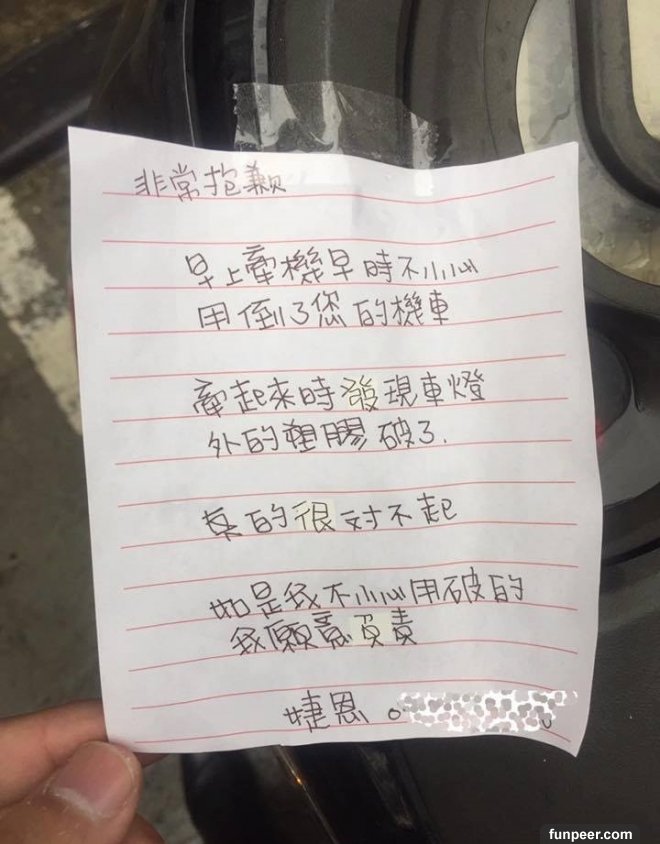 非常抱歉
早上牽機早時不小心
用倒了您的機車
牽起來時發現車燈
外的塑膠破了.
真的很对不起
如是我不小心用破的
我願意負責
婕恩
funpeer.com